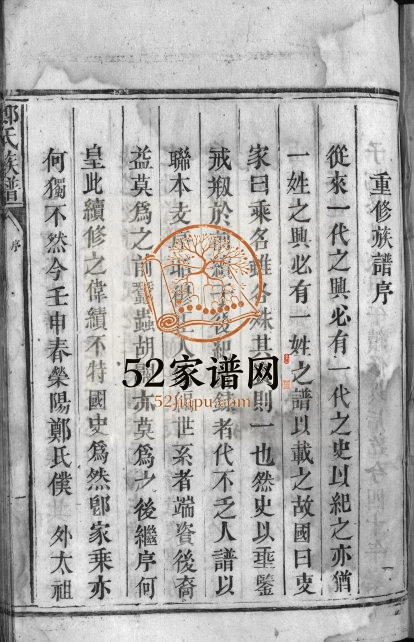 重修族譜序
從來一代之興必有一代之史以紀之亦猶
一姓之興必有一姓之譜以載之故國曰史
家曰乘名雖各殊其則一也然史以垂鑒
戒於前後者代不乏人譜以
聯本支世系者端資後裔
益莫為之前蠶蟲胡亦莫為之後繼序何
皇此續修之偉績不特國史為然卽家乘亦
何獨不然今壬申春榮陽鄭氏僕 外太祖
鄭氏族譜
序
52家谱网
52jiapu.com